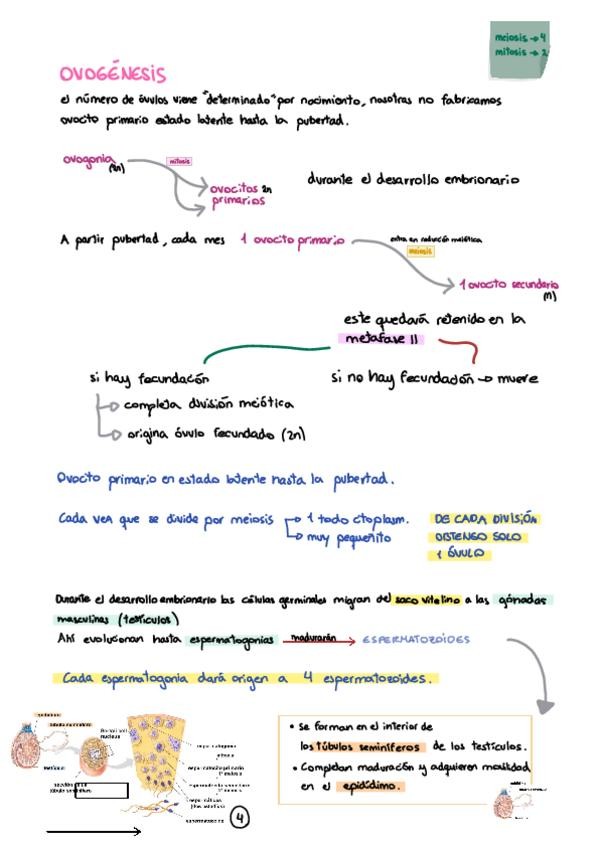 meiosis → 4
mitosis → 2
OVOGÉNESIS
el número de óvulos viene "determinado" por nacimiento, nosotras no fabricamos
ovocito primario estado latente hasta la pubertad.
ovogonia (2n)
mitosis
ovocitos 2n
primarios
durante el desarrollo embrionario
A partir pubertad, cada mes 1 ovocito primario
entra en reducción meiótica
meiosis
1 ovocito secundario
(n)
este quedará retenido en la
metafase II
si hay fecundación
si no hay fecundación → muere
completa división meiótica
origina óvulo fecundado (2n)
Ovocito primario en estado latente hasta la pubertad.
Cada vez que se divide por meiosis
1 todo citoplasm.
muy pequeñito
DE CADA DIVISIÓN
OBTENGO SOLO
1 ÓVULO
Durante el desarrollo embrionario las células germinales migran del saco vitelino a las gónadas
masculinas (testículos)
Ahí evolucionan hasta espermatogonias madurarán → ESPERMATOZOIDES
Cada espermatogonia dará origen a 4 espermatozoides.
• Se forman en el interior de
los túbulos seminíferos de los testículos.
• Completan maduración y adquieren motilidad
en el epidídimo.
4